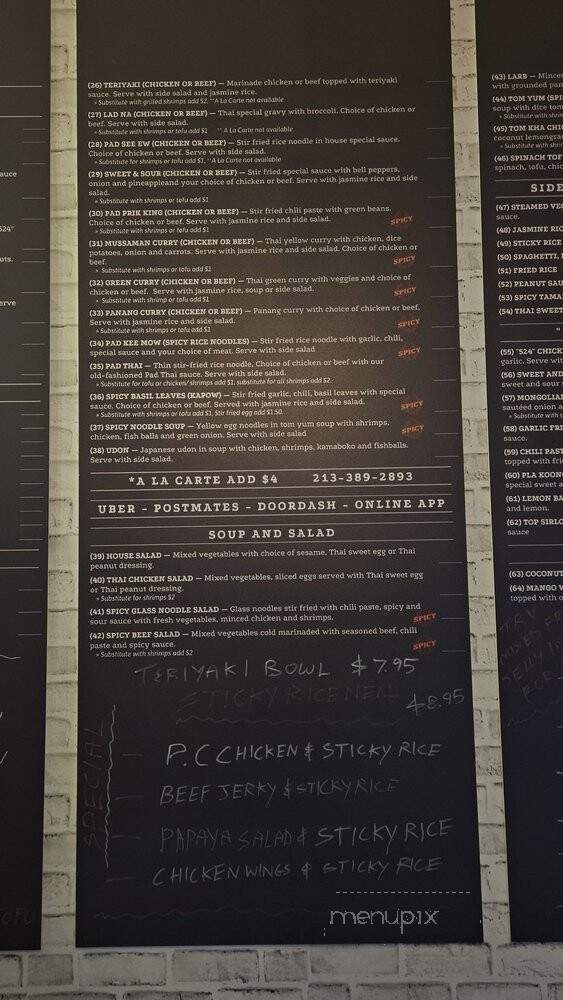 auce
524"
uts.
erve
(26) TERIYAKI (CHICKEN OR BEEF) — Marinade chicken or beef topped with teriyaki
sauce. Serve with side salad and jasmine rice.
» Substitute with grilled shrimps add $2, **A La Carte not available
(27) LAD NA (CHICKEN OR BEEF) — Thai special gravy with broccoli. Choice of chicken or
beef. Serve with side salad.
» Substitute with shrimps or tofu add $1 **A La Carte not available
(28) PAD SEE EW (CHICKEN OR BEEF) — Stir fried rice noodle in house special sauce.
Choice of chicken or beef. Serve with side salad.
» Substitute for shrimps or tofu add $1, **A La Carte not available
(29) SWEET & SOUR (CHICKEN OR BEEF) — Stir fried special sauce with bell peppers,
onion and pineappleand your choice of chicken or beef. Serve with jasmine rice and side
salad.
» Substitute with shrimps or tofu add $1
(30) PAD PRIK KING (CHICKEN OR BEEF) — Stir fried chili paste with green beans.
Choice of chicken or beef. Serve with jasmine rice and side salad.
» Substitute with shrimps or tofu add $1
SPICY
(31) MUSSAMAN CURRY (CHICKEN OR BEEF) — Thai yellow curry with chicken, dice
potatoes, onion and carrots. Serve with jasmine rice and side salad. Choice of chicken or
beef.
» Substitute with shrimps or tofu add $1
SPICY
(32) GREEN CURRY (CHICKEN OR BEEF) — Thai green curry with veggies and choice of
chicken or beef. Serve with jasmine rice, soup or side salad.
» Substitute with shrimp or tofu add $1
SPICY
(33) PANANG CURRY (CHICKEN OR BEEF) — Panang curry with choice of chicken or beef,
Serve with jasmine rice and side salad.
» Substitute with shrimps or tofu add $1
SPICY
(34) PAD KEE MOW (SPICY RICE NOODLES) — Stir fried rice noodle with garlic, chili,
special sauce and your choice of meat. Serve with side salad
SPICY
(35) PAD THAI — Thin stir-fried rice noodle. Choice of chicken or beef with our
old-fashioned Pad Thai sauce. Serve with side salad.
» Substitute for tofu or chicken/ shrimps add $1, substitute for all shrimps add $2
(36) SPICY BASIL LEAVES (KAPOW) — Stir fried garlic, chili, basil leaves with special
sauce. Choice of chicken or beef. Served with jasmine rice and side salad.
» Substitute with shrimps or tofu add $1, Stir fried egg add $1.50.
SPICY
(37) SPICY NOODLE SOUP — Yellow egg noodles in tom yum soup with shrimps,
chicken, fish balls and green onion. Serve with side salad
SPICY
(38) UDON — Japanese udon in soup with chicken, shrimps, kamaboko and fishballs.
Serve with side salad.
*A LA CARTE ADD $4 213-389-2893
UBER - POSTMATES - DOORDASH - ONLINE APP
SOUP AND SALAD
(39) HOUSE SALAD — Mixed vegetables with choice of sesame, Thai sweet egg or Thai
peanut dressing.
(40) THAI CHICKEN SALAD — Mixed vegetables, sliced eggs served with Thai sweet egg
or Thai peanut dressing.
» Substitute for shrimps $2
(41) SPICY GLASS NOODLE SALAD — Glass noodles stir fried with chili paste, spicy and
sour sauce with fresh vegetables, minced chicken and shrimps.
SPICY
(42) SPICY BEEF SALAD — Mixed vegetables cold marinaded with seasoned beef, chili
paste and spicy sauce.
» Substitute with shrimps add $2
SPICY
TERIYAKI BOWL $7.95
STICKY RICE MEAL
$8.95
SPECIAL
P.C CHICKEN & STICKY RICE
BEEF JERKY & STICKY RICE
PAPAYA SALAD & STICKY RICE
CHICKEN WINGS & STICKY RICE
menupix
(43) LARB — Mince
with grounded pan
(44) TOM YUM (SP
soup with dice tom
» Substitute with shrim
(45) TOM KHA CHI
coconut lemongras
» Substitute with shri
(46) SPINACH TOF
spinach, tofu, chic
SIDE
(47) STEAMED VEG
sauce.
(48) JASMINE RIC
(49) STICKY RICE
(50) SPAGHETTI,
(51) FRIED RICE
(52) PEANUT SAU
(53) SPICY TAMA
(54) THAI SWEET
(55) "524" CHICK
garlic. Serve wit
(56) SWEET AND
sweet and sour s
(57) MONGOLIA
sautéed onion a
» Substitute with
(58) GARLIC FRI
sauce.
(59) CHILI PAST
topped with fri
(60) PLA KOON
special sweet a
(61) LEMON BA
and lemon.
(62) TOP SIRLO
sauce
(63) COCONUT
(64) MANGO W
topped with co